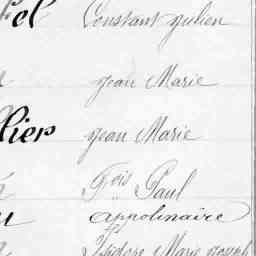 el Constant Julien
Jean Marie
llier Jean Marie
Fçois Paul
appolinaire
Isidore Marie Joseph